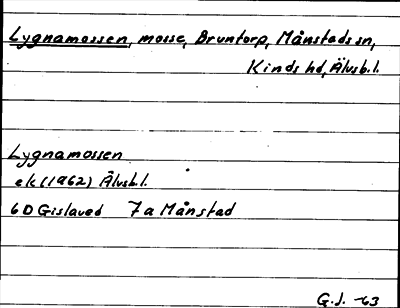 Lygnamossen, mosse, Bruntorp, Månstads sn,
Kinds hd, Älvsb.l.
Lygnamossen
ek (1962) Älvsb.l.
6D Gislaved 7a Månstad
G.J. -63